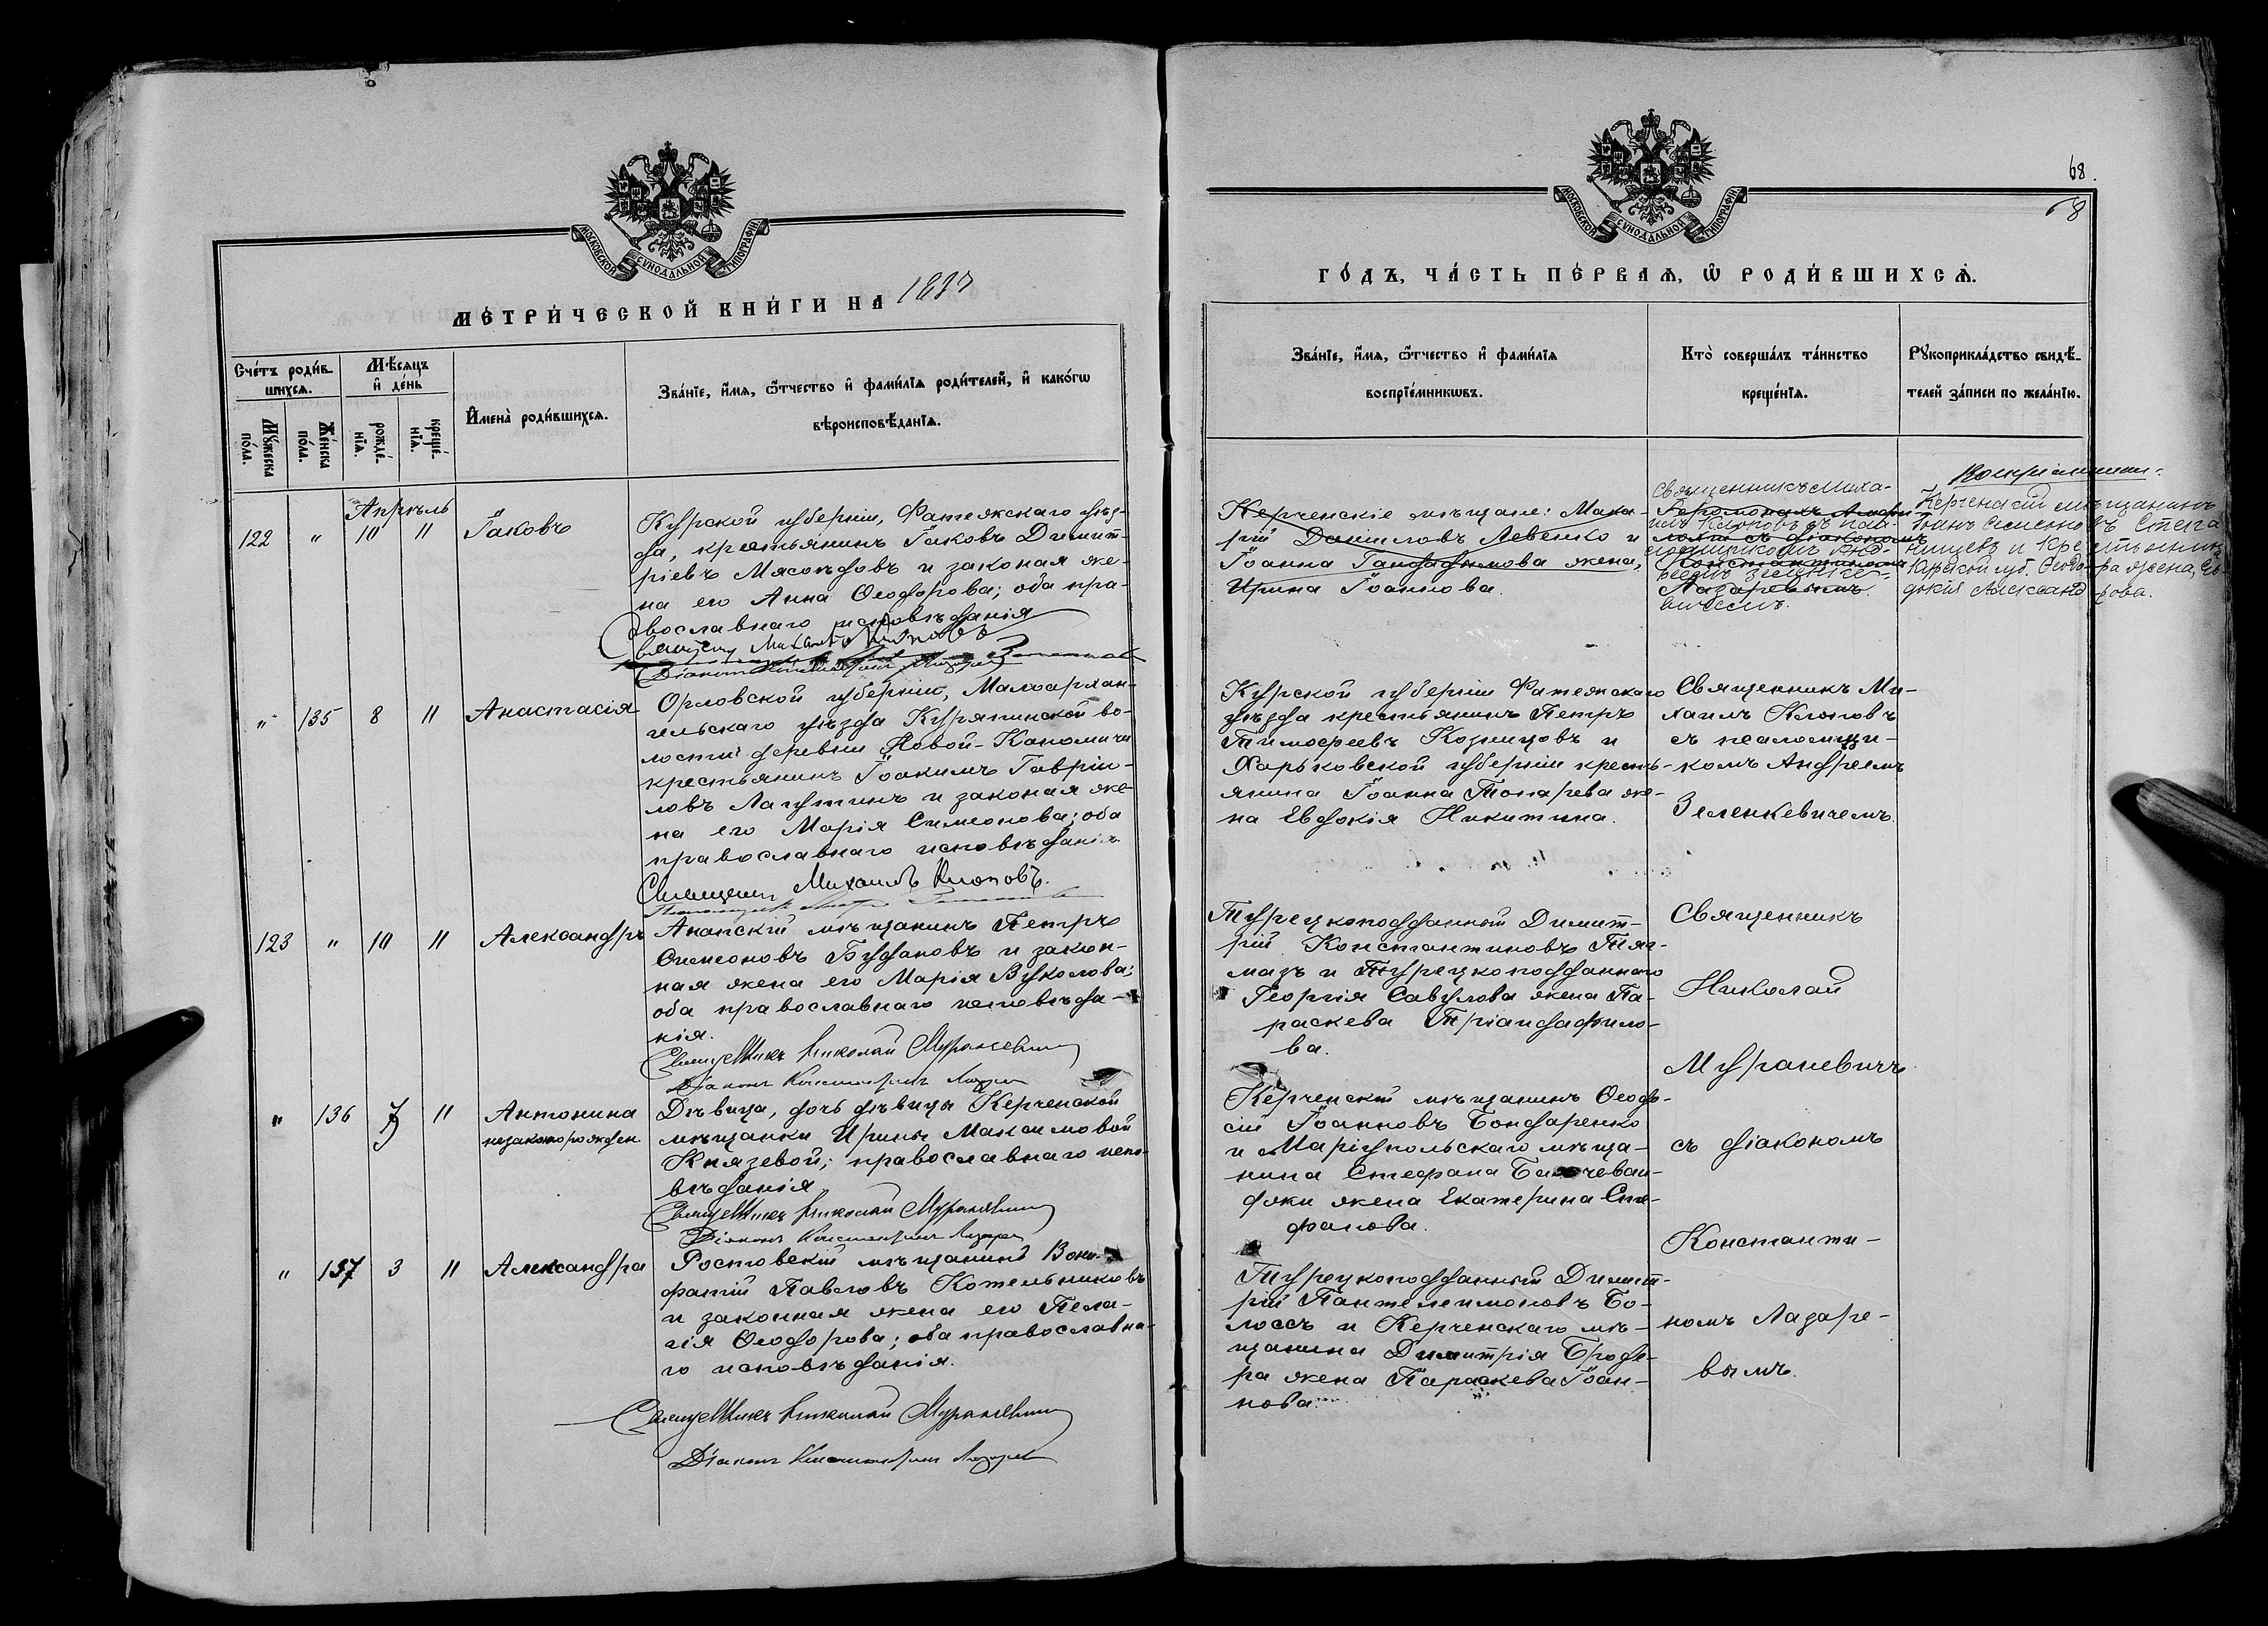 МОСКОВСКОЙ СѴНОДАЛЬНОЙ ТИПОГРАФІИ
МЕТРИ́ЧЕСКОЙ КНИ́ГИ НА
Сче́тъ роди́в-
шихсѧ.
Мѣ́сяцъ
и҆ де́нь
Мꙋ́жеска
по́ла.
Же́нска
по́ла.
рожде́-
нїѧ.
креще́-
нїѧ.
И҆мена̀ роди́вшихсѧ.
Зва́нїе, и҆́мѧ, ѻ҆́тчество и҆ фами́лїѧ роди́телей, и҆ како́гѡ
вѣроисповѣ́данїѧ.
Апрѣль
122 " 10 11 Іаковъ
Курской губерніи, Фатежскаго уѣз-
да, крестьянинъ Іаковъ Димит-
ріевъ Мясоѣдовъ и законая же-
на его Анна Ѳеодорова; оба пра-
вославнаго исповѣданія
" 135 8 11 Анастасія
Орловской губерніи, Малоархан-
гельскаго уѣзда Курапинской во-
лости деревни Новой-
крестьянинъ Іоакимъ Гавріи-
ловъ Лагутинъ и законая же-
на его Марія Симеонова; оба
православнаго исповѣданія
Священникъ Михаилъ Клоповъ.
123 " 10 11 Александръ
Анапскій мѣщанинъ Петръ
Симеоновъ Буддаковъ и закон-
ная жена его Марія Вуколова;
оба православнаго исповѣда-
нія.
Священникъ Николай Мураневичъ
Діаконъ Константинъ Лазаревъ
" 136 7 11 Антонина
незаконорожден.
Дѣвица, дочь дѣвицы Керченской
мѣщанки Ирины Максимовой
Князевой; православнаго испо-
вѣданія
Священникъ Николай Мураневичъ
Діаконъ Константинъ Лазаревъ
" 137 3 11 Александра
Ростовскій мѣщанинъ Вони-
фатій Павловъ Котельниковъ
и законная жена его Пела-
гія Ѳеодорова; оба православна-
го исповѣданія.
Священникъ Николай Мураневичъ
Діаконъ Константинъ Лазаревъ
68.
68
МОСКОВСКОЙ СѴНОДАЛЬНОЙ ТИПОГРАФІИ
ГО́ДЪ, ЧА́СТЬ ПЕ́РВАѦ, Ѡ҆ РОДИ́ВШИХСѦ.
Зва́нїе, и҆́мѧ, ѻ҆́тчество и҆ фами́лїѧ
воспрїе́мникѡвъ.
Кто̀ соверша́лъ та́инство
креще́нїѧ.
Рꙋкоприкла́дство свидѣ́-
телей за́писи по жела́нїю.
Керченскіе мѣщане: Мака-
рій Даниловъ Левенко и
Іоанна жена,
Ирина Іоаннова.
Священникъ Миха-
илъ Клоповъ съ псал-
Константиномъ
Лазаревымъ
Воспріемники:
Керченскій мѣщанинъ
Іоаннъ Симеоновъ
Курской губ. Ѳеодора жена, Ев-
докія Александрова.
Курской губерніи Фатежскаго
уѣзда крестьянинъ Петръ
Тимоѳеевъ Козницовъ и
Харьковской губерніи кресть-
янина Іоанна Топарева же-
на Евдокія Никитина.
Священникъ Ми-
хаилъ Клоповъ
съ псаломщи-
комъ Андреемъ
Зеленкевичемъ.
Турецкоподданный Димит-
рій Константиновъ
и Турецкоподданнаго
Георгія Савулова жена Па-
раскева Тріандафило-
ва.
Керченскій мѣщанинъ Ѳеодо-
сій Іоанновъ Бондаренко
и Маріупольскаго мѣща-
нина Стефана
жена Екатерина Сте-
фанова.
Турецкоподданный Димит-
рій Пантелеимоновъ Бо-
лоссъ и Керченскаго мѣ-
щанина Димитрія
жена Параскева Іоан-
нова
Священникъ
Николай
Мураневичъ
съ діакономъ
Константи-
номъ Лазаре-
вымъ.